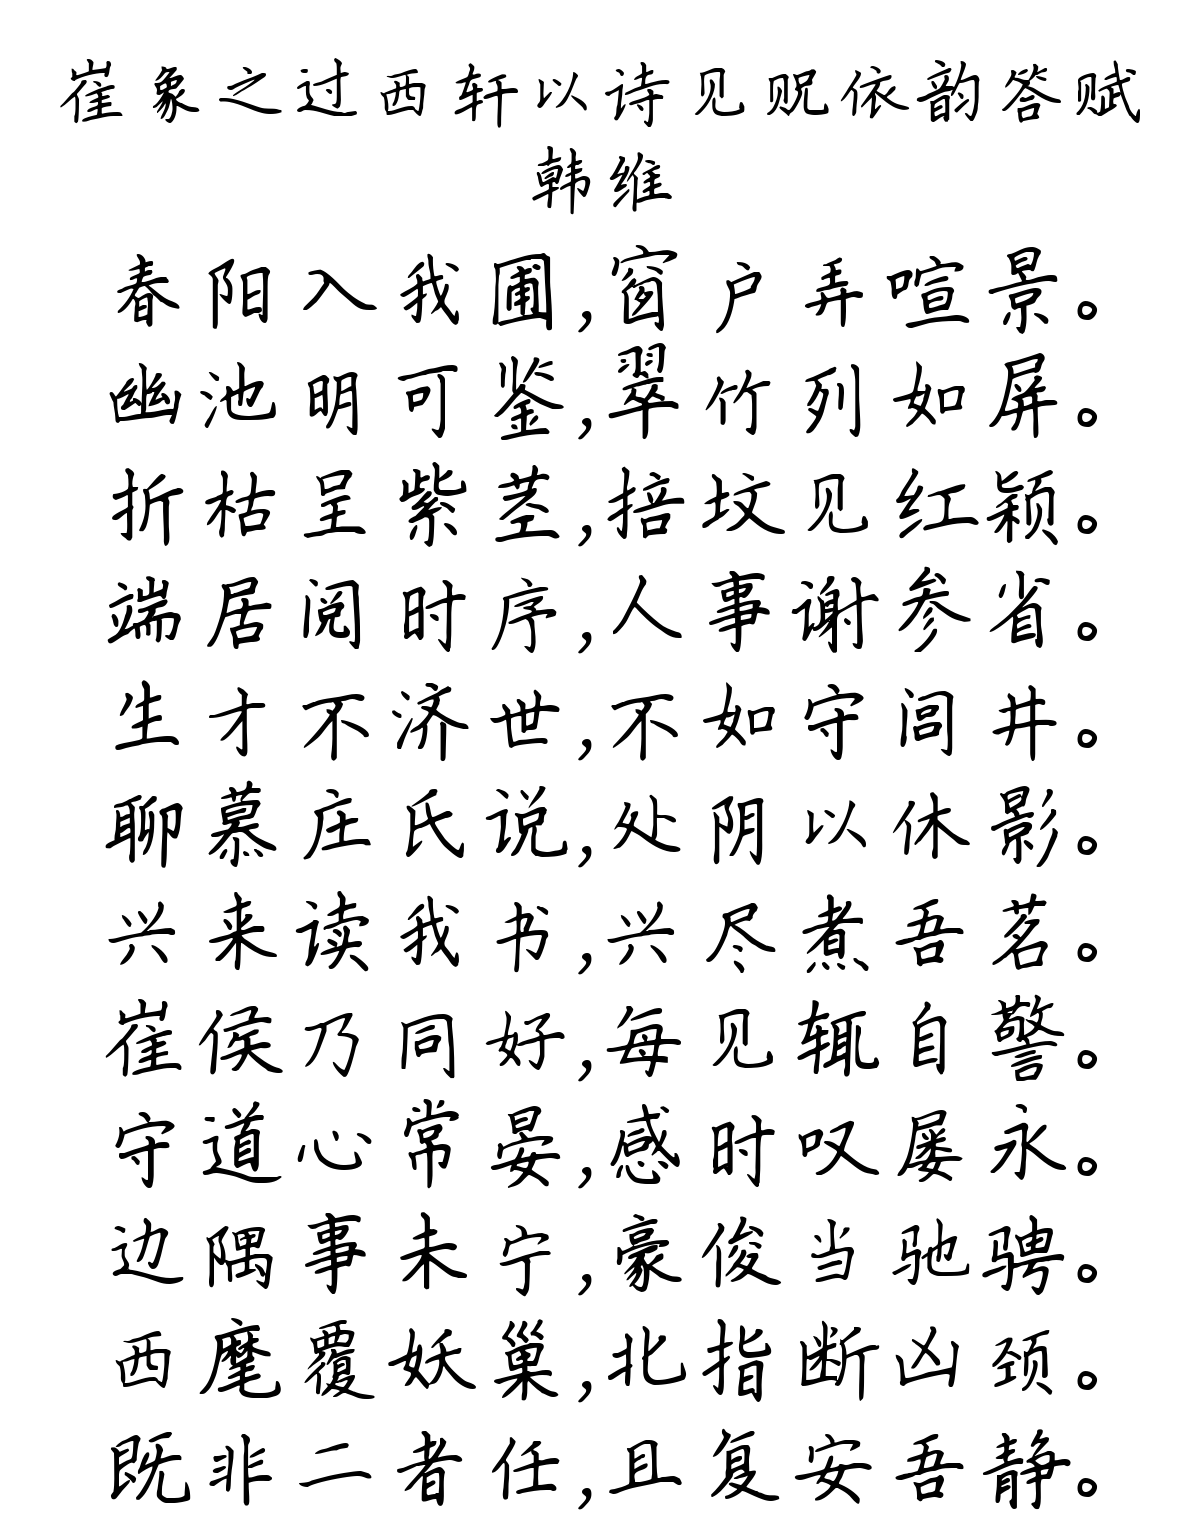 崔象之过西轩以诗见贶依韵答赋
韩维
春阳入我圃,窗户弄暄景。
幽池明可鉴,翠竹列如屏。
折枯呈紫茎,掊坟见红颖。
端居阅时序,人事谢参省。
生才不济世,不如守闾井。
聊慕庄氏说,处阴以休影。
兴来读我书,兴尽煮吾茗。
崔侯乃同好,每见辄自警。
守道心常晏,感时叹屡永。
边隅事未宁,豪俊当驰骋。
西麾覆妖巢,北指断凶颈。
既非二者任,且复安吾静。